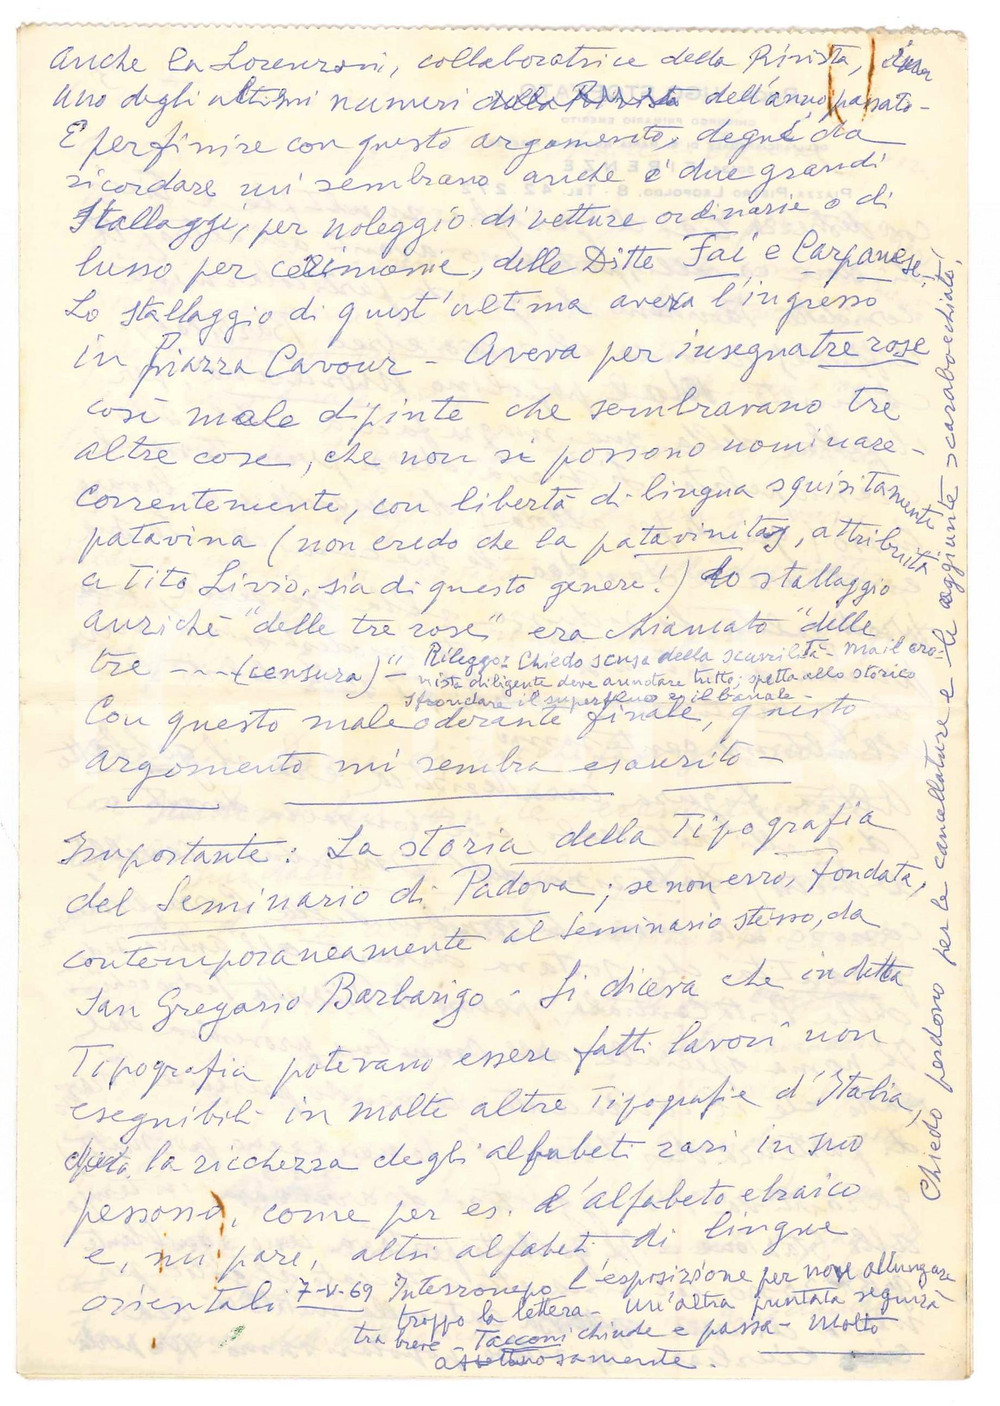 Anche la Lorenzoni, collaboratrice della Rivista, in
uno degli ultimi numeri della Rivista dell'anno passato -
E per finire con questo argomento, degni da
ricordare mi sembrano anche i due grandi
Stallaggi, per noleggio di vetture ordinarie o di
lusso per cerimonie, delle Ditte Fai e Carpanese.
Lo stallaggio di quest'ultima aveva l'ingresso
in Piazza Cavour - Aveva per insegna tre rose
così male dipinte che sembravano tre
altre cose, che non si possono nominare -
Correntemente, con libertà di lingua squisitamente
patavina (non credo che la patavinitas, attribuita
a Tito Livio, sia di questo genere!) lo stallaggio
anziché "delle tre rose" era chiamato "delle
tre ---- (censura)" -
Rileggo: Chiedo scusa della scurrilità - ma il cro-
nista diligente deve annotare tutto; spetta allo storico
sfrondare il superfluo e il banale -
Con questo male odorante finale, questo
argomento mi sembra esaurito -
Importante: La storia della Tipografia
del Seminario di Padova; se non erro, fondata,
contemporaneamente al Seminario stesso, da
San Gregorio Barbarigo - Si diceva che in detta
Tipografia potevano essere fatti lavori non
eseguibili in molte altre Tipografie d'Italia,
la ricchezza degli alfabeti rari in suo
possesso, come per es. l'alfabeto ebraico
e, mi pare, altri alfabeti di lingue
orientali
7-V-69 Interrompo l'esposizione per non allungare
troppo la lettera - Un'altra puntata seguirà
tra breve - Tacconi chiude e passa - Molto
affettuosamente.
Chiedo perdono per le cancellature e le aggiunte scarabocchiate!